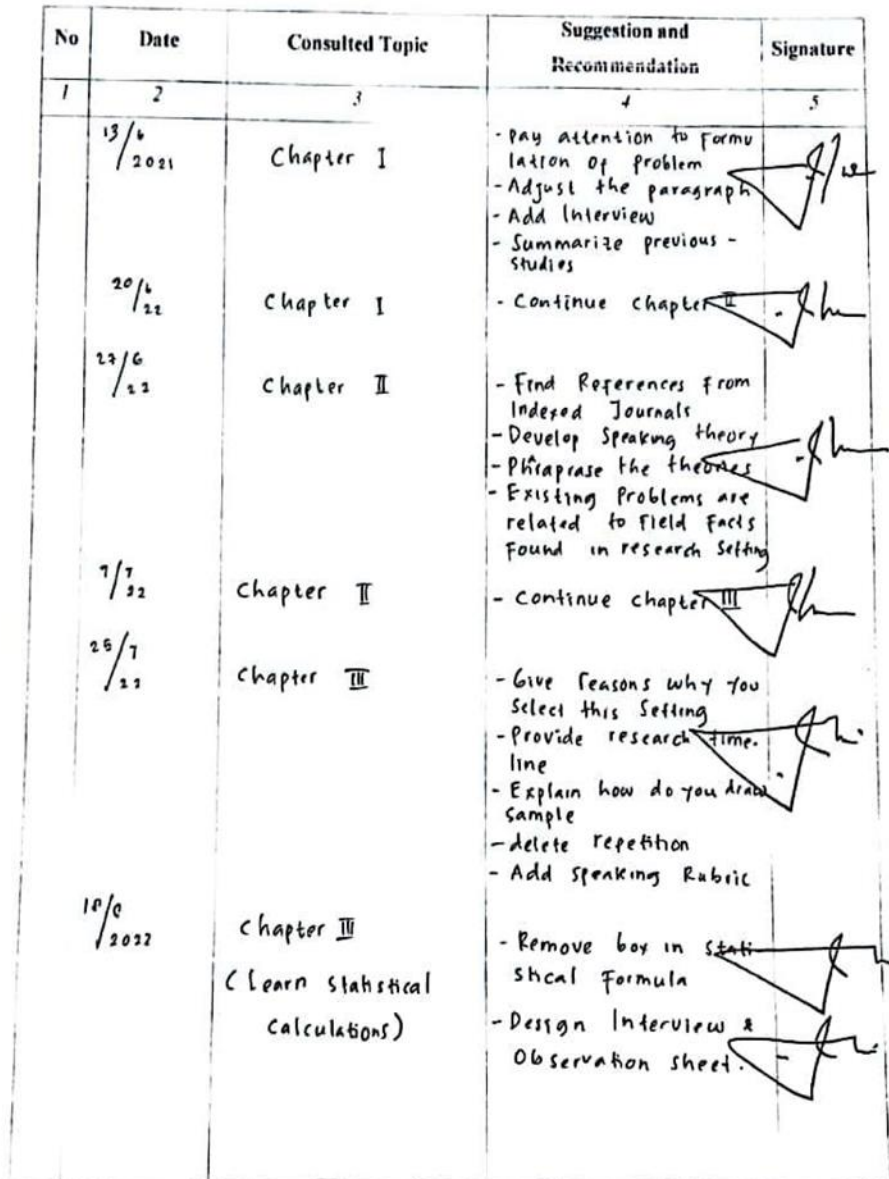 No Date Consulted Topic Suggestion and Recommendation Signature
1 2 3 4 5
13/6
2021
Chapter I
- Pay attention to Formu
lation of problem
- Adjust the paragraph
- Add Interview
- Summarize previous -
studies
20/6
22
Chapter I
- Continue chapter II
27/6
22
Chapter II
- Find References From
Indexed Journals
- Develop Speaking theory
- Phraprase the theories
- Existing Problems are
related to Field Facts
Found in research Setting
7/7
22
Chapter II
- Continue chapter III
25/7
22
Chapter III
- Give reasons why you
Select this Setting
- Provide research time.
line
- Explain how do you draw
Sample
- delete repetition
- Add Speaking Rubric
2022
Chapter III
(Learn Statistical
Calculations)
- Remove box in Stati-
stical Formula
- Design Interview &
Observation sheet.